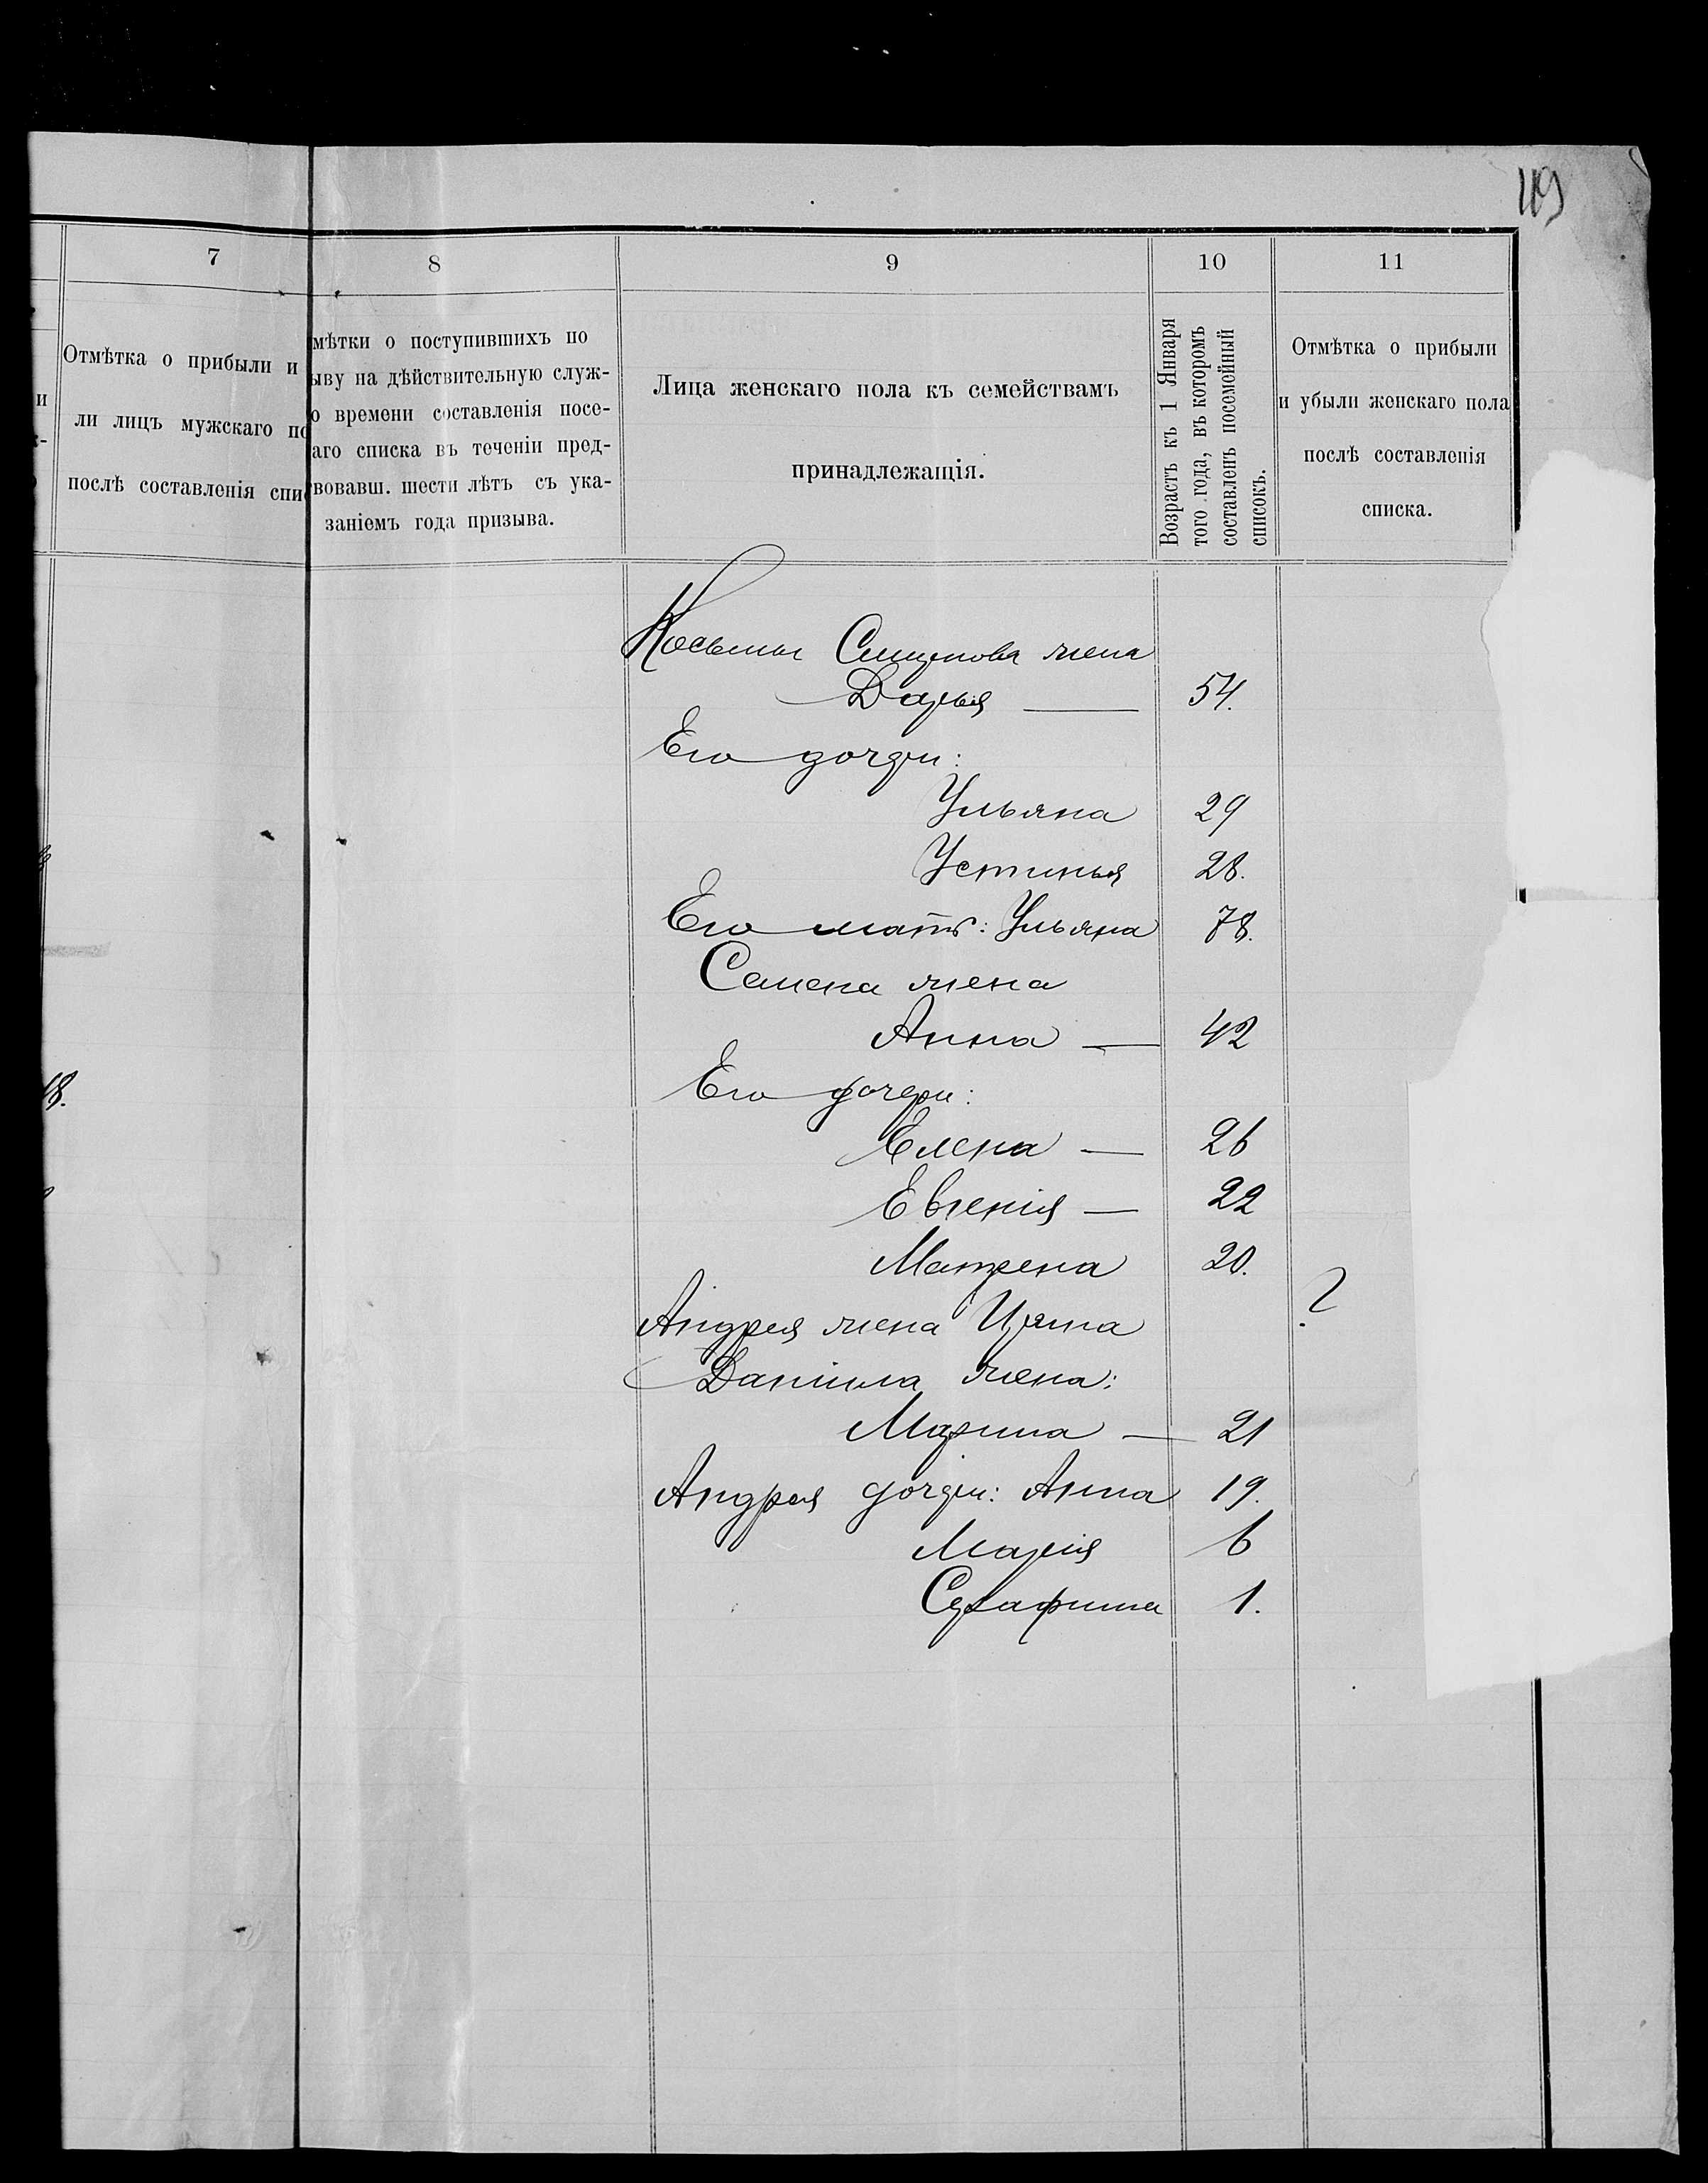 49
7
8
9
10
11
Отмѣтка о прибыли и
ли лицъ мужскаго по
послѣ составленія спи
мѣтки о поступившихъ по
ыву на дѣйствительную служ-
о времени составленія посе-
аго списка въ теченіи пред-
вовавш. шести лѣтъ съ ука-
заніемъ года призыва.
Лица женскаго пола къ семействамъ
принадлежащія.
Возрастъ къ 1 Января
того года, въ которомъ
составленъ посемейный
списокъ.
Отмѣтка о прибыли
и убыли женскаго пола
послѣ составленія
списка.
Косьмы жена
Дарья — 54.
Его дочери:
Ульяна 29
Устинья 28.
Его мать: Ульяна 78.
Семена жена
Анна — 42
Его дочери:
Елена — 26
Евгенія — 22
Матрена 20.
Андрея жена Ирина ?
Даніила жена:
Марина — 21
Андрея дочери: Анна 19.
Марія 6
Серафима 1.
18.